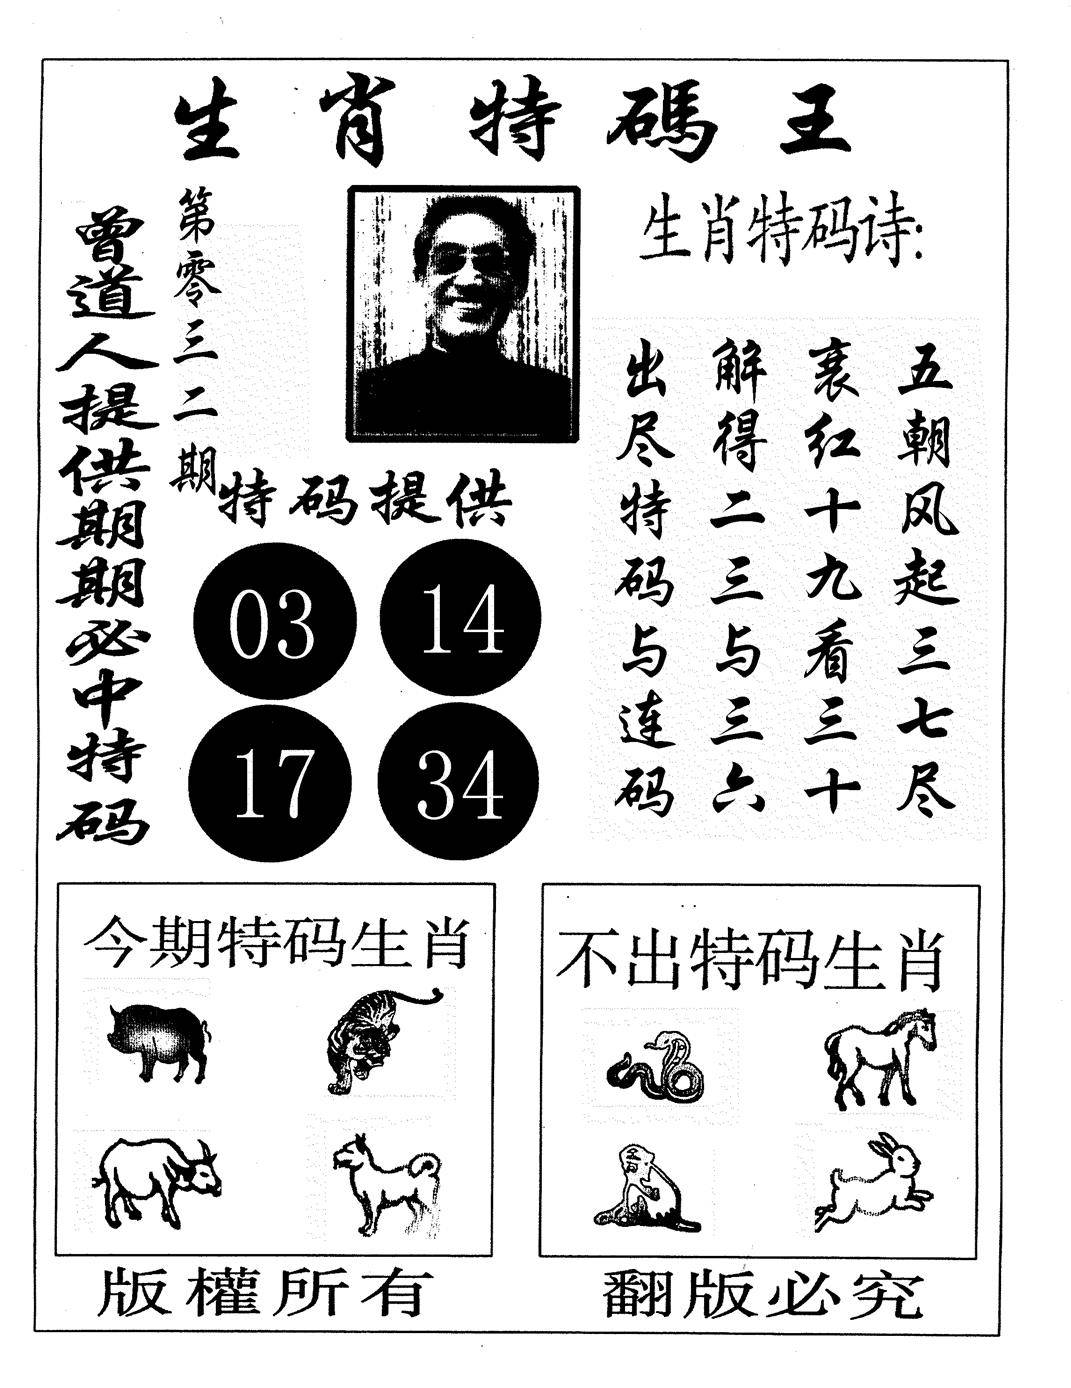 生肖特碼王
曾道人提供期期必中特码
第零三二期
生肖特码诗:
五朝风起三七尽
衰红十九看三十
解得二三与三六
出尽特码与连码
特码提供
03 14
17 34
今期特码生肖
不出特码生肖
版權所有
翻版必究